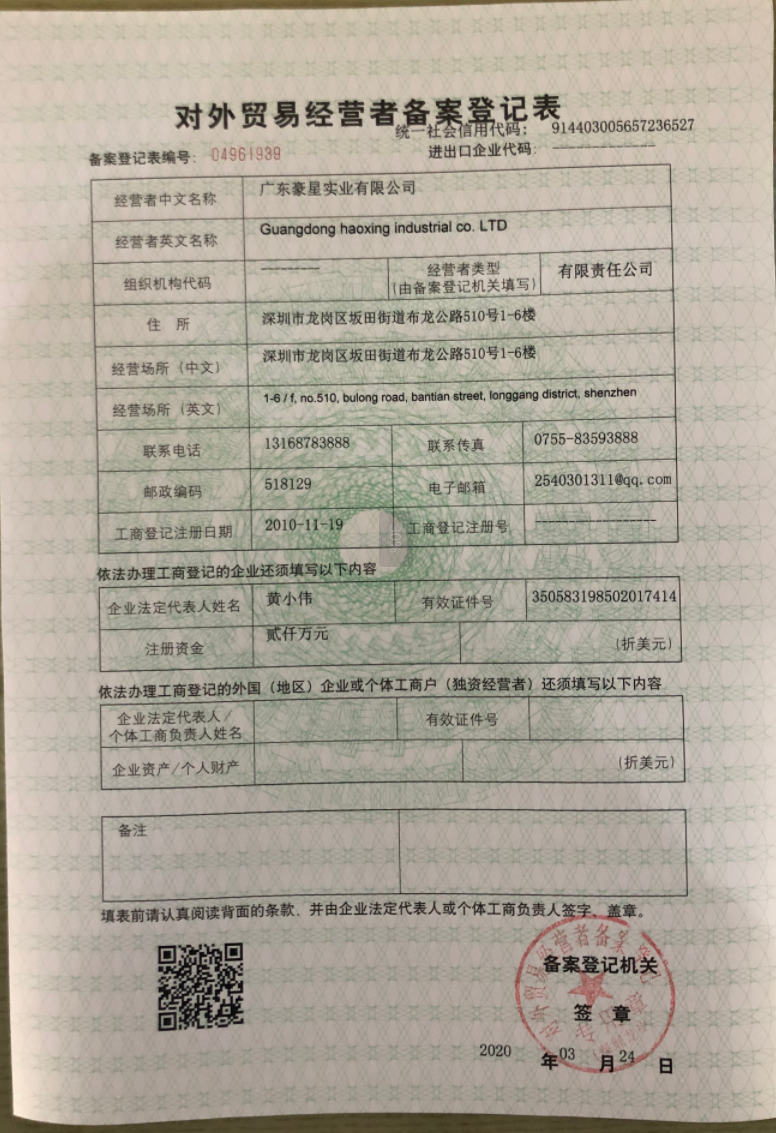 对外贸易经营者备案登记表
统一社会信用代码： 914403005657236527
备案登记表编号： 04961939
进出口企业代码： --------------
经营者中文名称 广东豪星实业有限公司
经营者英文名称 Guangdong haoxing industrial co. LTD
组织机构代码 -------- 经营者类型 (由备案登记机关填写) 有限责任公司
住 所 深圳市龙岗区坂田街道布龙公路510号1-6楼
经营场所（中文） 深圳市龙岗区坂田街道布龙公路510号1-6楼
经营场所（英文） 1-6 / f, no.510, bulong road, bantian street, longgang district, shenzhen
联系电话 13168783888 联系传真 0755-83593888
邮政编码 518129 电子邮箱 2540301311@qq.com
工商登记注册日期 2010-11-19 工商登记注册号 ----------------
依法办理工商登记的企业还须填写以下内容
企业法定代表人姓名 黄小伟 有效证件号 350583198502017414
注册资金 贰仟万元 (折美元)
依法办理工商登记的外国（地区）企业或个体工商户（独资经营者）还须填写以下内容
企业法定代表人/ 有效证件号
个体工商负责人姓名
企业资产/个人财产 (折美元)
备注
填表前请认真阅读背面的条款，并由企业法定代表人或个体工商负责人签字、盖章。
备案登记机关
签 章
2020 年 03 月 24 日